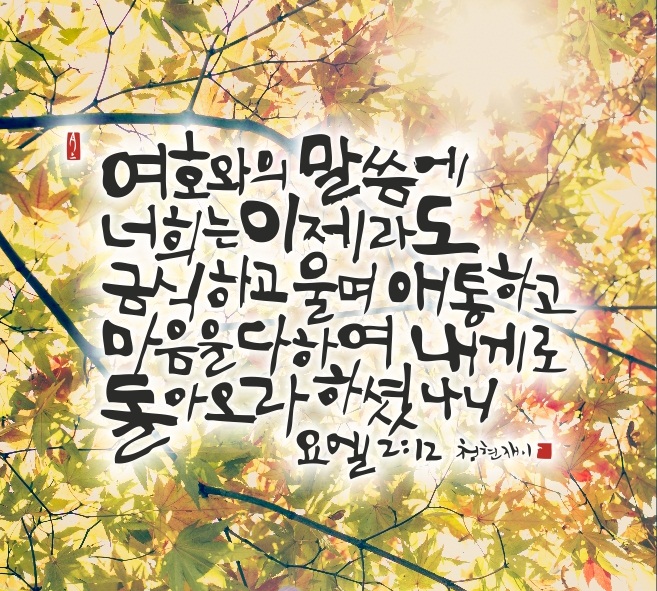 여호와의 말씀에
너희는 이제라도
금식하고 울며 애통하고
마음을 다하여 내게로
돌아오라 하셨나니
요엘 2:12 청현재이